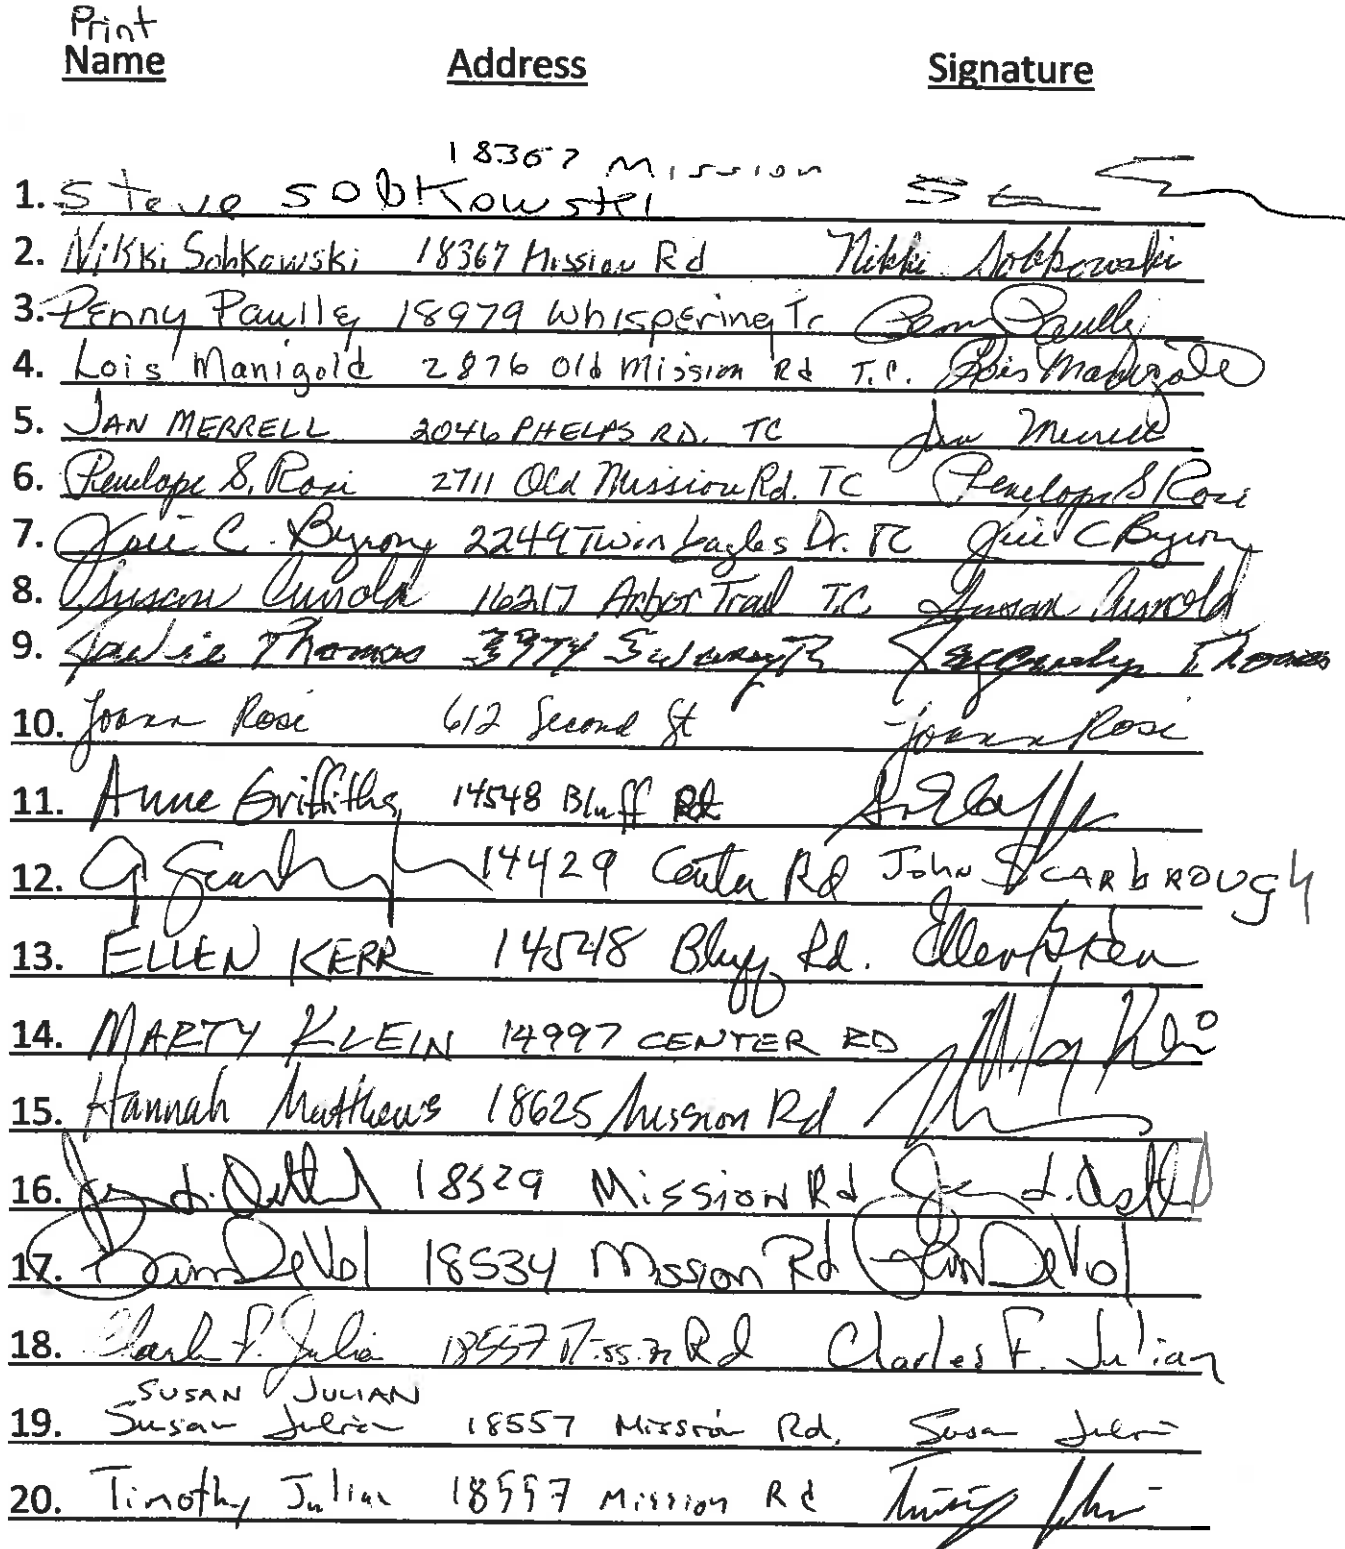 Print
Name Address Signature
18367 Mission
1. Steve Sobkowski
2. Nikki Sobkowski 18367 Mission Rd Nikki Sobkowski
3. Penny Paulle 18979 Whispering Tr Penny Paulle
4. Lois Manigold 2876 Old Mission Rd T.C. Lois Manigold
5. JAN MERRELL 2046 PHELPS RD. TC Jan Merrell
6. Penelope S. Rosi 2711 Old Mission Rd. TC Penelope S Rosi
7. C. Byrony 2249 Twin Eagles Dr. TC C Byrony
8. Susan Arnold 16217 Arbor Trail T.C. Susan Arnold
9. Thomas Thomas
10. Joann Rosi 612 Second St Joann Rosi
11. Anne Griffiths 14548 Bluff Rd
12. 14429 Center Rd John SCARbROUgh
13. ELLEN KERR 14548 Bluff Rd. Ellen Kerr
14. MARTY KLEIN 14997 CENTER RD
15. Hannah Matthews 18625 Mission Rd
16. 18529 Mission Rd
17. DeVol 18534 Mission Rd DeVol
18. Charles F. Julian 18557 Mission Rd Charles F. Julian
SUSAN JULIAN
19. Susan Julian 18557 Mission Rd. Susan Julian
20. Timothy Julian 18557 Mission Rd